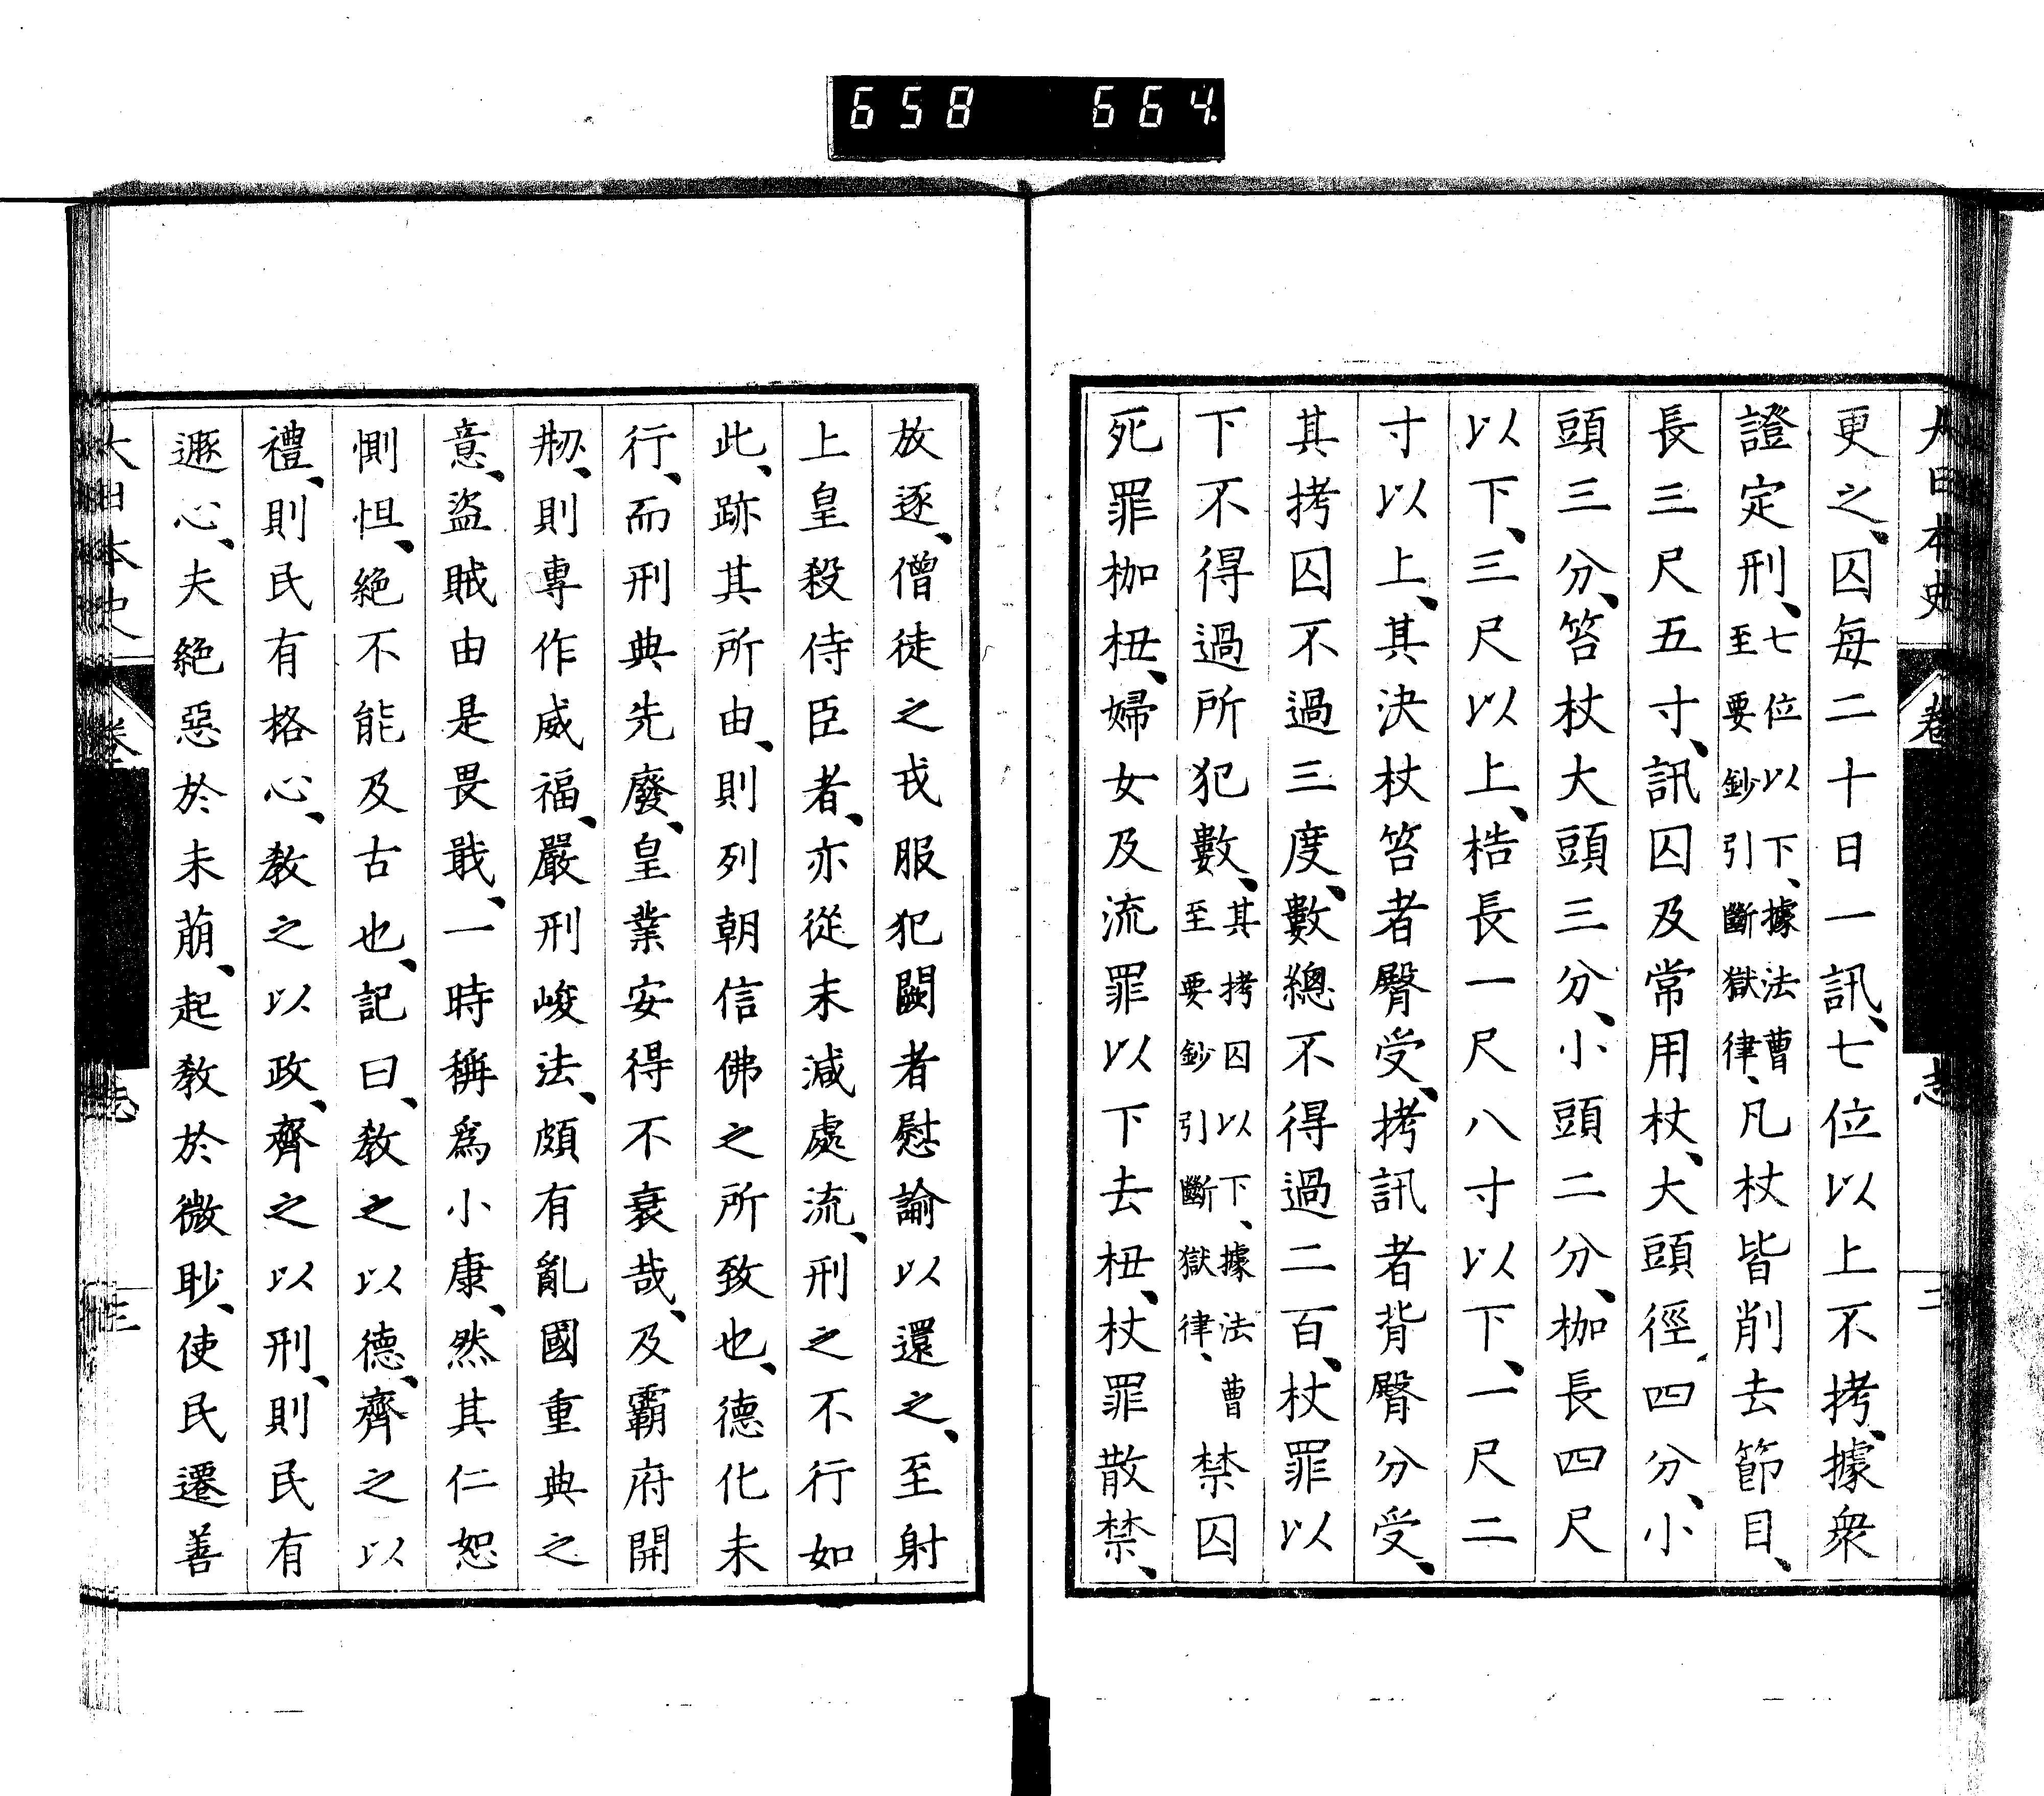 658 664
大日本史 卷 志 二
更之、囚每二十日一訊、七位以上不拷、據衆
證定刑、七位以下、據法曹至要鈔引斷獄律、凡杖皆削去節目、
長三尺五寸、訊囚及常用杖、大頭徑四分、小
頭三分、笞杖大頭三分、小頭二分、枷長四尺
以下、三尺以上、梏長一尺八寸以下、一尺二
寸以上、其決杖笞者臀受、拷訊者背臀分受、
其拷囚不過三度、數總不得過二百、杖罪以
下不得過所犯數、其拷囚以下、據法曹至要鈔引斷獄律、禁囚
死罪枷杻、婦女及流罪以下去杻、杖罪散禁、
放逐、僧徒之戎服犯闕者慰諭以還之、至射
上皇殺侍臣者、亦從末減處流、刑之不行如
此、跡其所由、則列朝信佛之所致也、德化未
行、而刑典先廢、皇業安得不衰哉、及霸府開
剏、則專作威福、嚴刑峻法、頗有亂國重典之
意、盜賊由是畏戢、一時稱爲小康、然其仁恕
惻怛、絕不能及古也、記曰、敎之以德、齊之以
禮、則民有格心、敎之以政、齊之以刑、則民有
遯心、夫絕惡於未萠、起敎於微眇、使民遷善
大日本史 卷 志 三